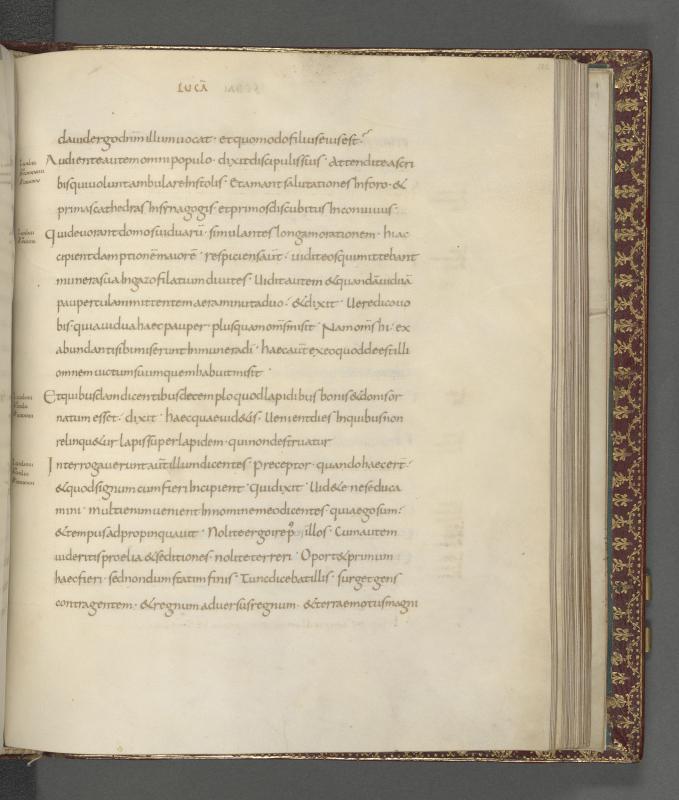 LUCĀ
dauid ergo dnm̄ illum uocat · et quomodo filius eius est·
Audiente autem omni populo · dixit discipulis suis · Attendite a scri
bis qui uolunt ambulare in stolis · Et amant salutationes in foro · &
primas cathedras in synagogis · et primos discubitus in conuiuiis ·
Qui deuorant domos uiduarū · simulantes longam orationem · hi ac
cipient damptionē maiorē · respiciens aūt · uidit eos qui mittebant
munera sua in gazofilatium diuites · Uidit autem & quandā uiduā
pauperculam mittentem aera minuta duo · & dixit · Uere dico uo
bis · quia uidua haec pauper · plus quam om̄s misit · Nam om̄s hi · ex
abundanti sibi miserunt in munera dī · haec aūt ex eo quod deest illi
omnem uictum suum quem habuit misit ·
Et quibusdam dicentibus de templo quod lapidibus bonis & donis or
natum esset · dixit · haec quae uid&is · Uenient dies in quibus non
relinqu&ur lapis super lapidem · qui non destruatur
Interrogauerunt aūt illum dicentes · preceptor · quando haec er̄t ·
& quod signum cum fieri incipient · Qui dixit · Uid&e ne seduca
mini · multi enim uenient in nomine meo dicentes · quia ego sum ·
& tempus adpropinquauit · Nolite ergo ire p̊ illos · Cum autem
uideritis proelia & seditiones · nolite terreri · Oport& primum
haec fieri · sed non dum statim finis · Tunc dicebat illis · surget gens
contra gentem · & regnum aduersus regnum · & terrae motus magni